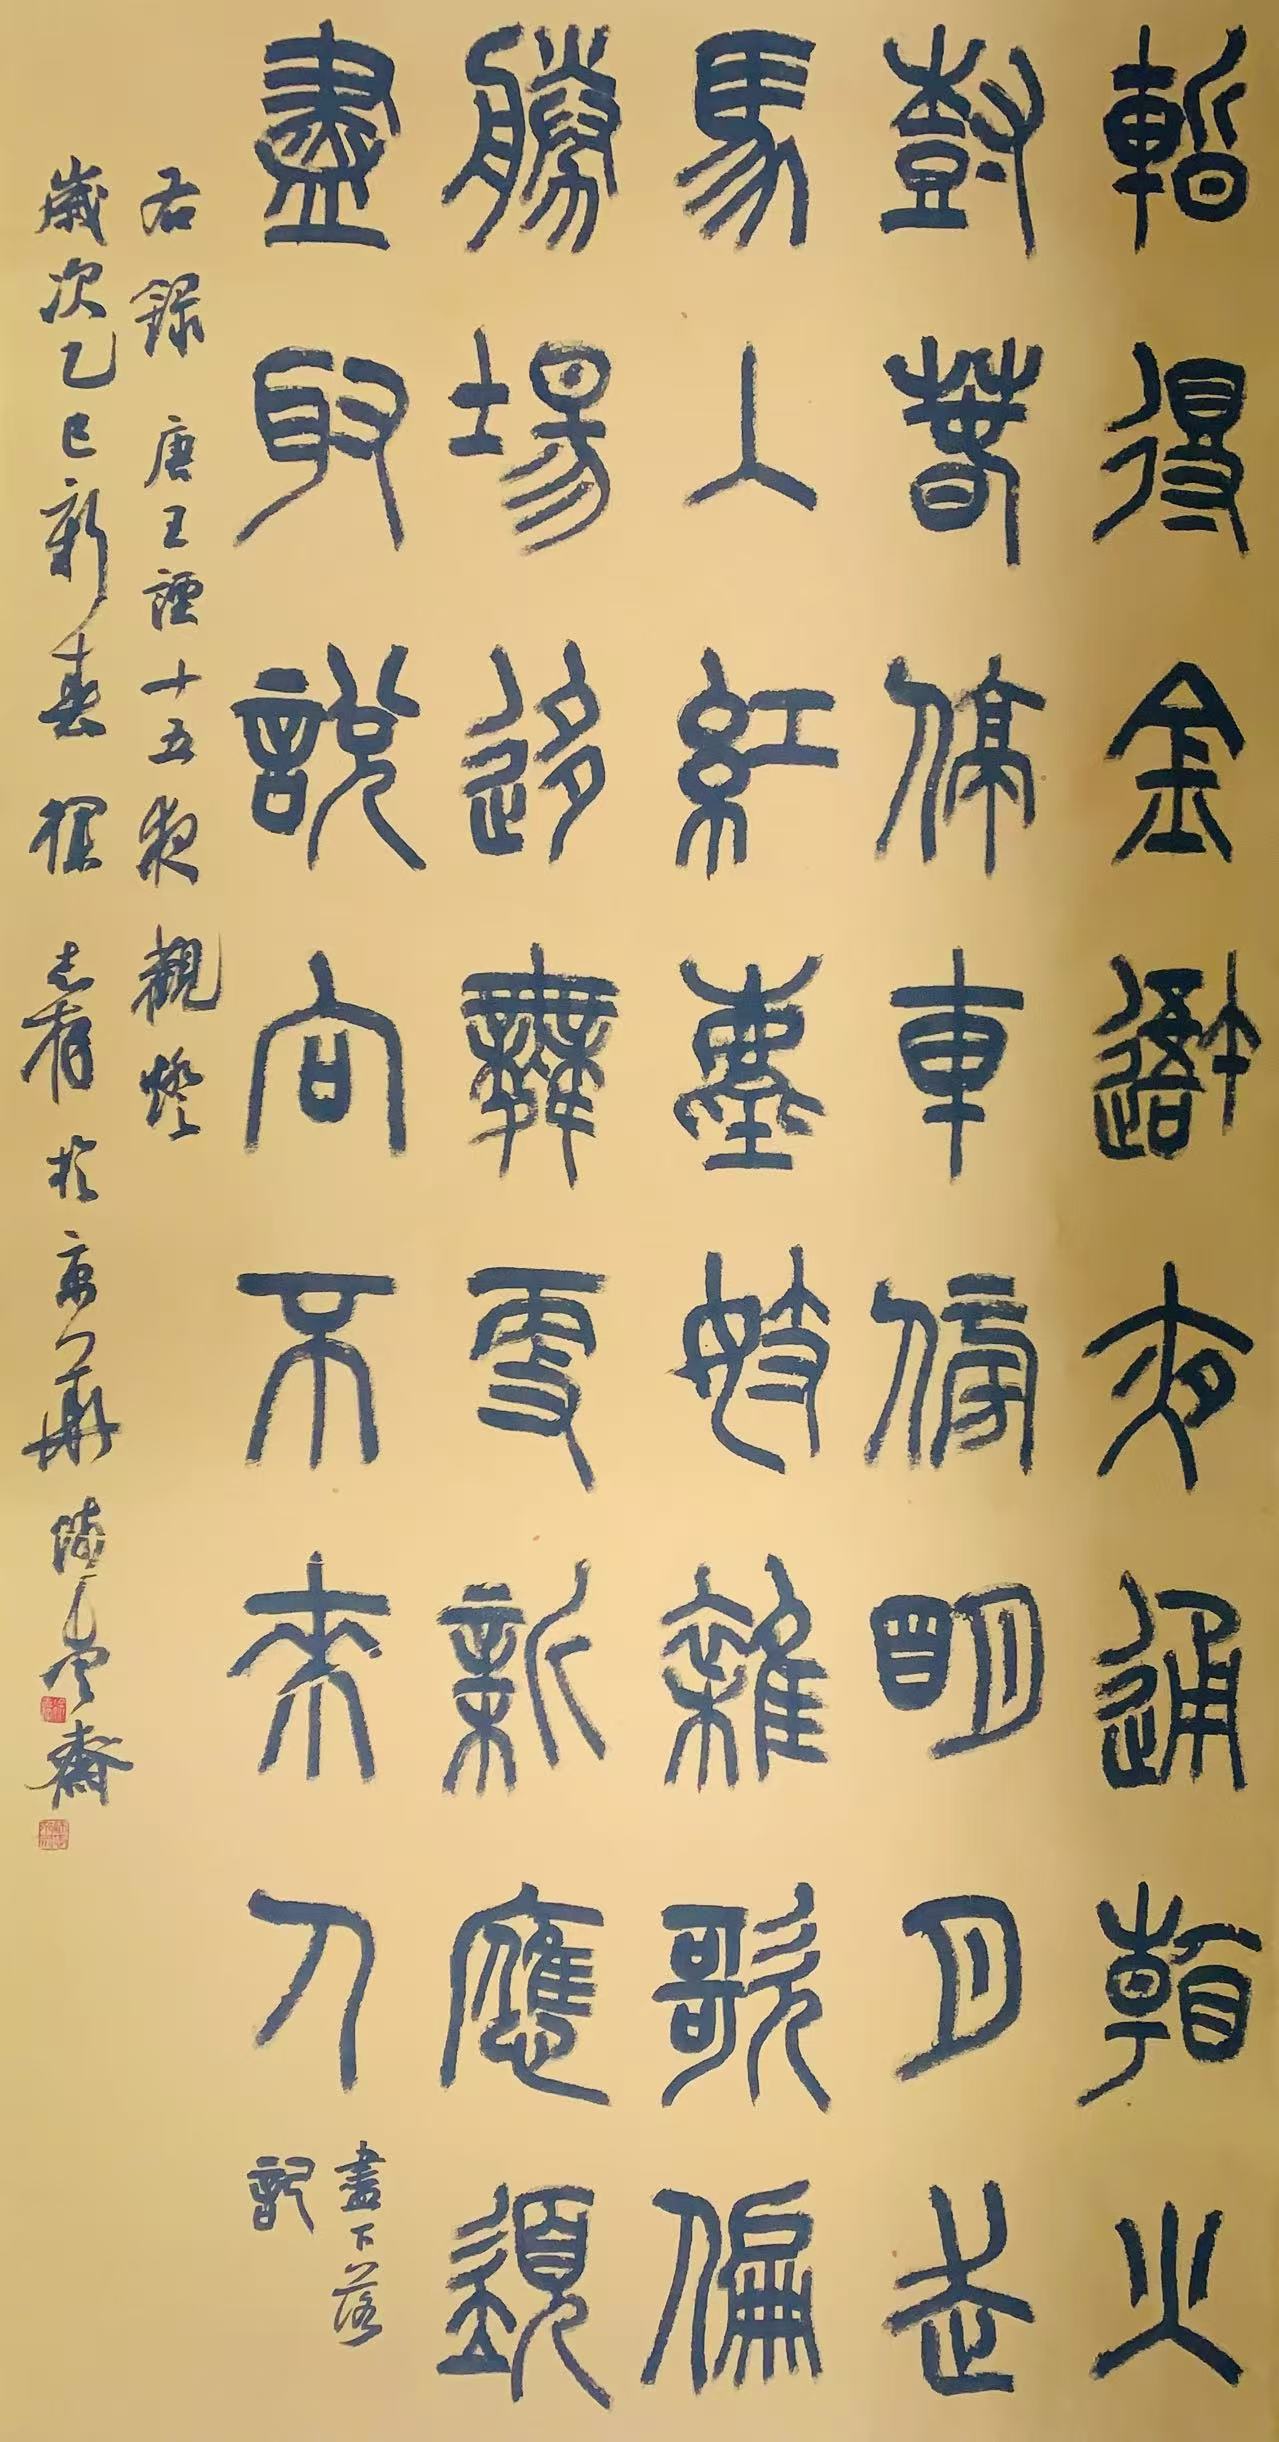 暫得金吾夜通看火
樹春停車傍明月走
馬入紅塵妓雜歌偏
勝場迻舞更新應須
盡取說向不來人
盡下落
記
右錄 唐王諲十五夜觀燈
歲次乙巳新春 於京華 齋